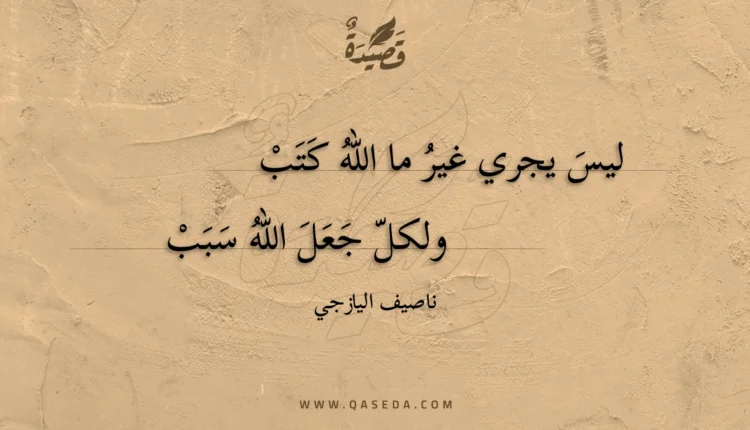 قَصِيْدَةٌ
ليسَ يجري غيرُ ما اللهُ كَتَبْ
ولكلّ جَعَلَ اللهُ سَبَبْ
ناصيف اليازجي
WWW.QASEDA.COM